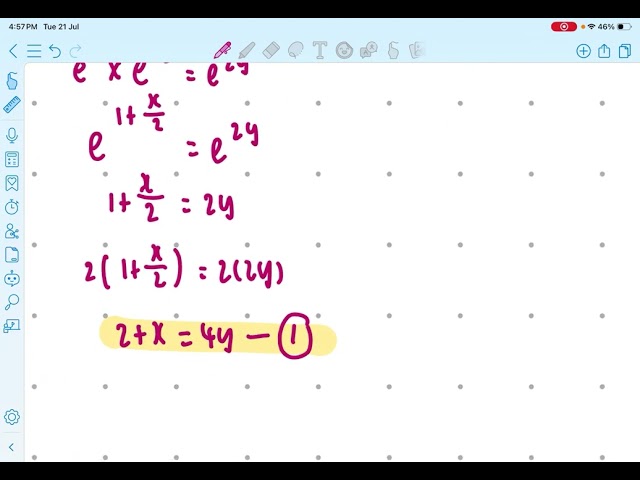 4:57PM Tue 21 Jul
46%
e x e = e^2y
e^(1+x/2) = e^2y
1+x/2 = 2y
2(1+x/2) = 2(2y)
2+x = 4y — ①